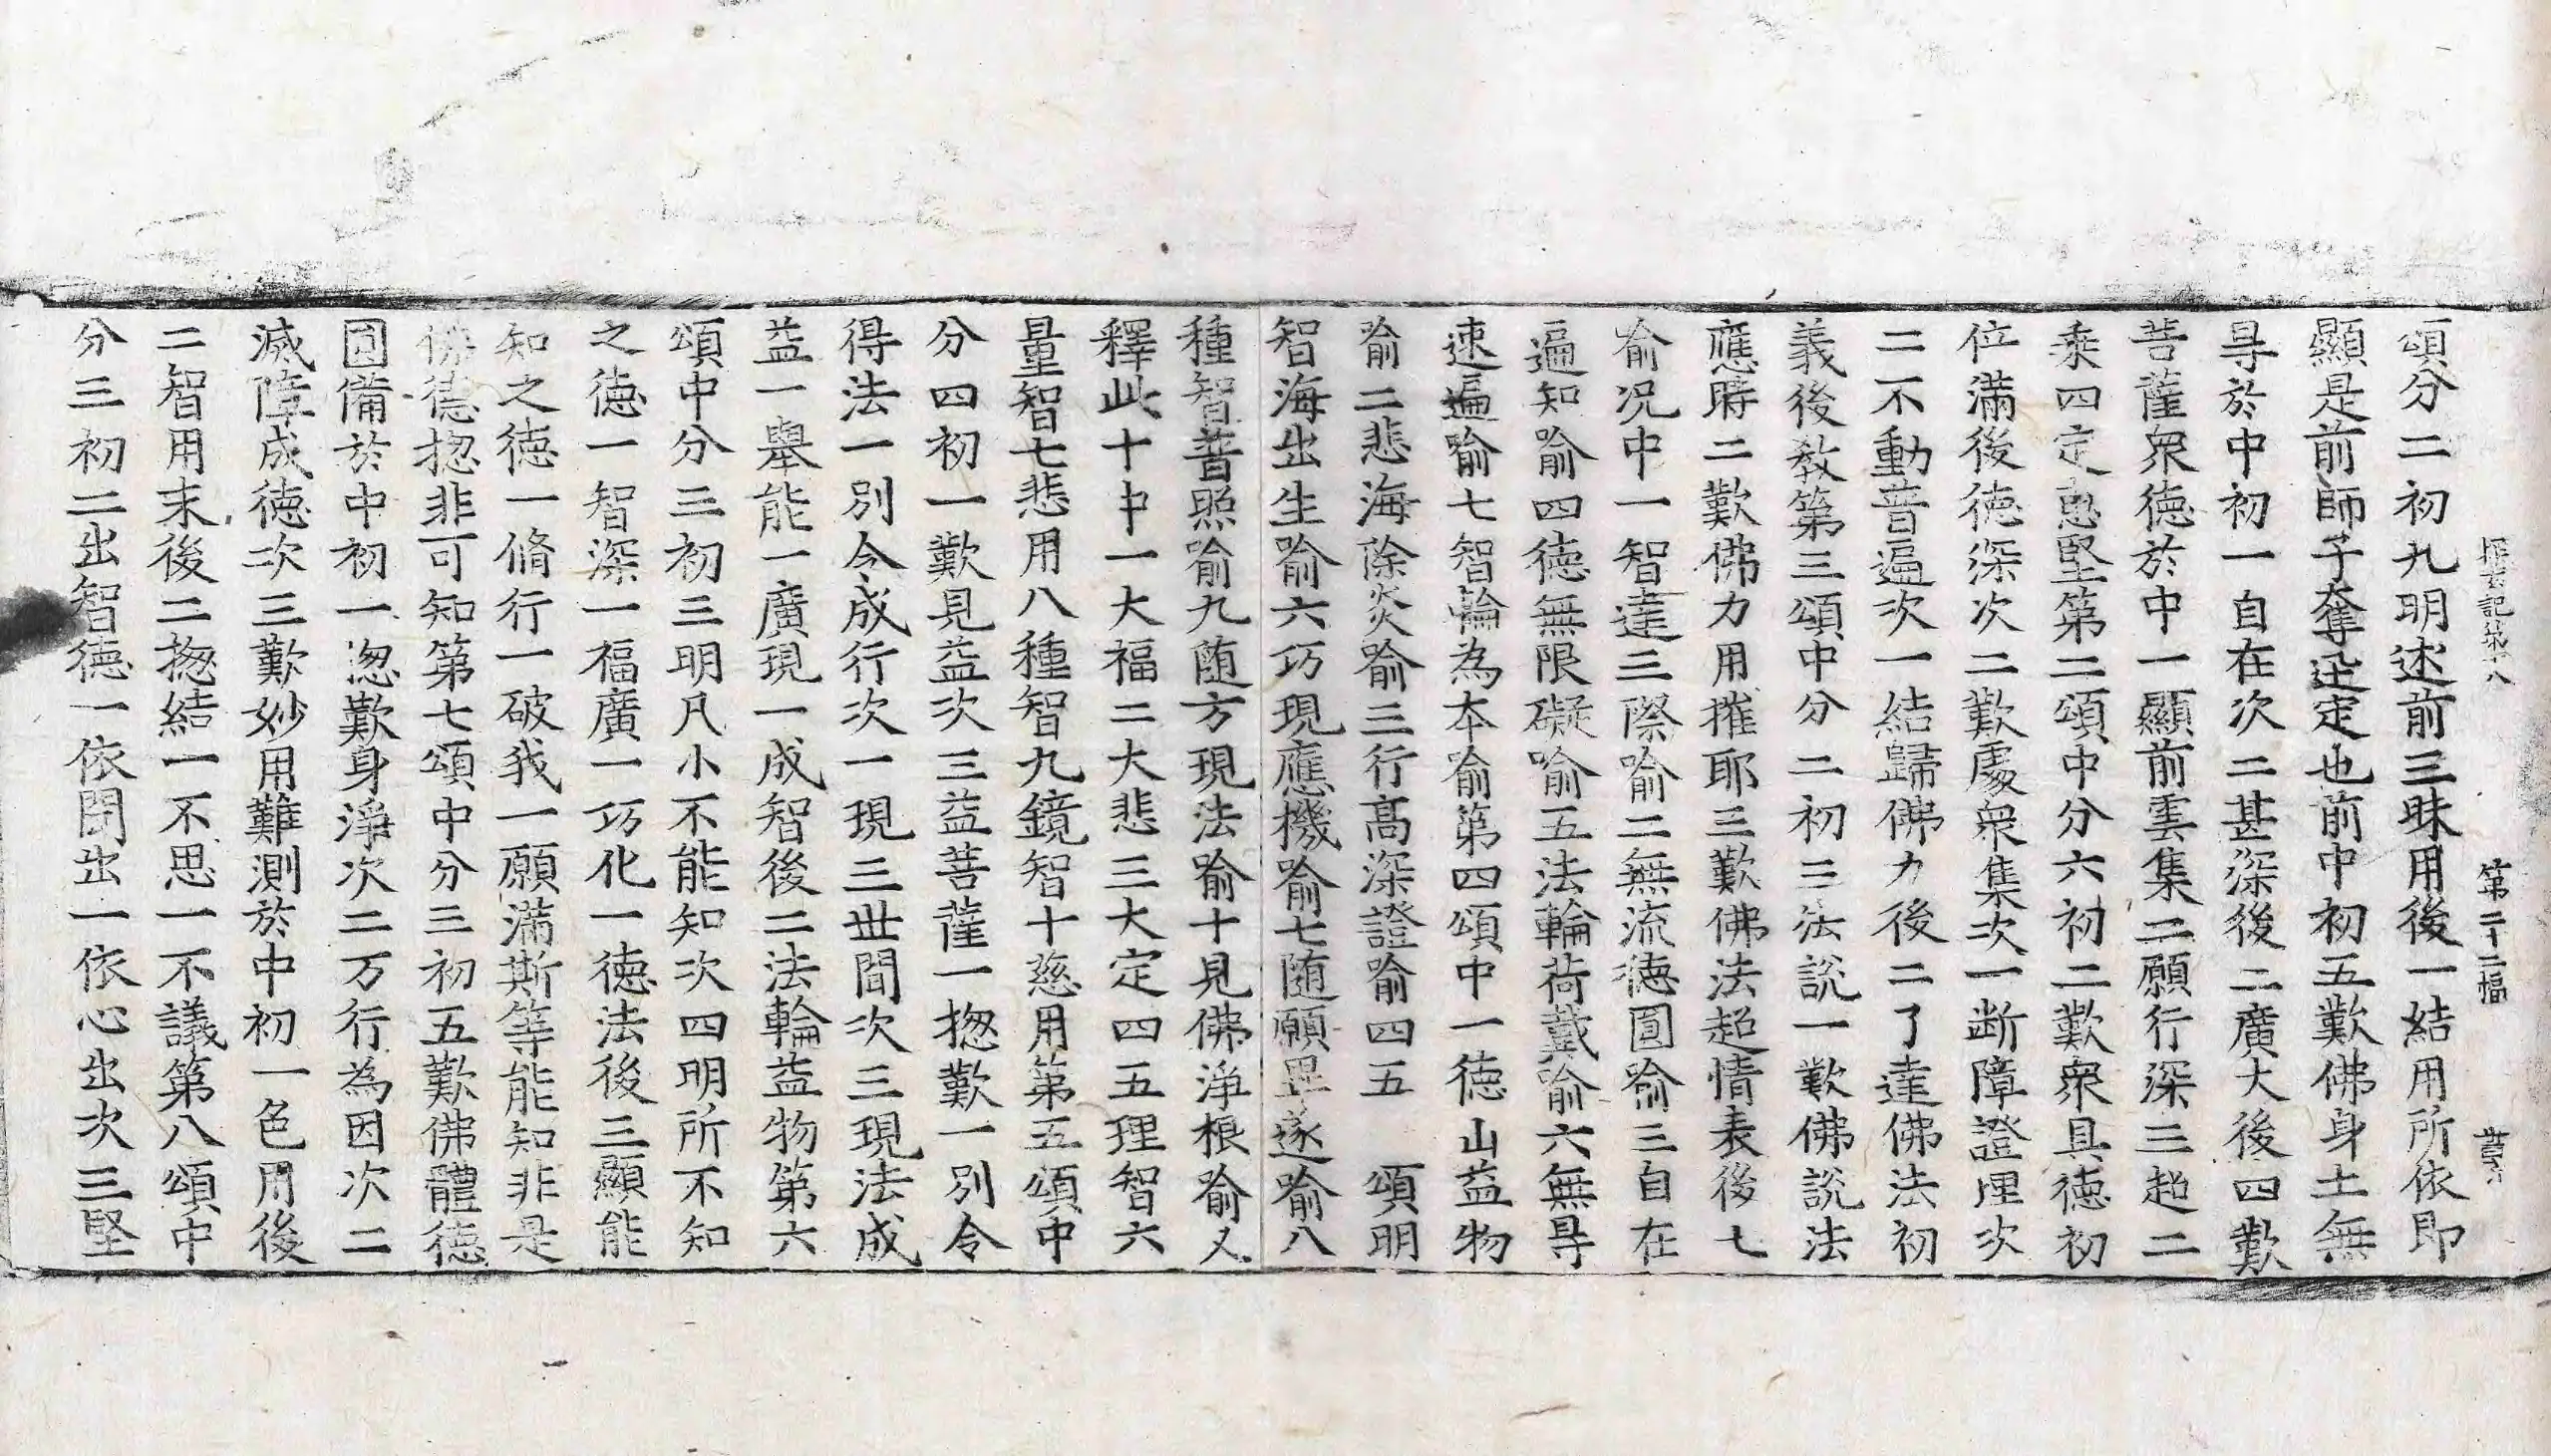 探玄記第十八　第二十二幅
頌分二初九明述前三昧用後一結用所依即
顯是前師子奮迅定也前中初五歎佛身土無
㝵於中初一自在次二甚深後二廣大後四歎
菩薩衆徳於中一顯前雲集二願行深三超二
乘四定惠堅第二頌中分六初二歎衆具徳初
位滿後徳深次二歎處衆集次一断障證理次
二不動普遍次一結歸佛力後二了達佛法初
義後教第三頌中分二初三法說一歎佛說法
應時二歎佛力用摧耶三歎佛法超情表後七
喻况中一智達三際喻二無流徳圓喻三自在
遍知喻四徳無限礙喻五法輪荷戴喻六無㝵
速遍喻七智輪為本喻第四頌中一徳山益物
喻二悲海除炎喻三行高深證喻四五　頌明
智海出生喻六巧現應機喻七随願畢遂喻八
種智普照喻九随方現法喻十見佛淨根喻又
釋此十中一大福二大悲三大定四五理智六
量智七悲用八種智九鏡智十慈用第五頌中
分四初一歎見益次三益菩薩一揔歎一別令
得法一別令成行次一現三世間次三現法成
益一舉能一廣現一成智後二法輪益物第六
頌中分三初三明凡小不能知次四明所不知
之徳一智深一福廣一巧化一徳法後三顯能
知之徳一脩行一破我一願滿斯等能知非是
佛徳揔非可知第七頌中分三初五歎佛體徳
圓備於中初一揔歎身淨次二万行為因次二
滅障成徳次三歎妙用難測於中初一色用後
二智用末後二揔結一不思一不議第八頌中
分三初二出智徳一依聞出一依心出次三堅